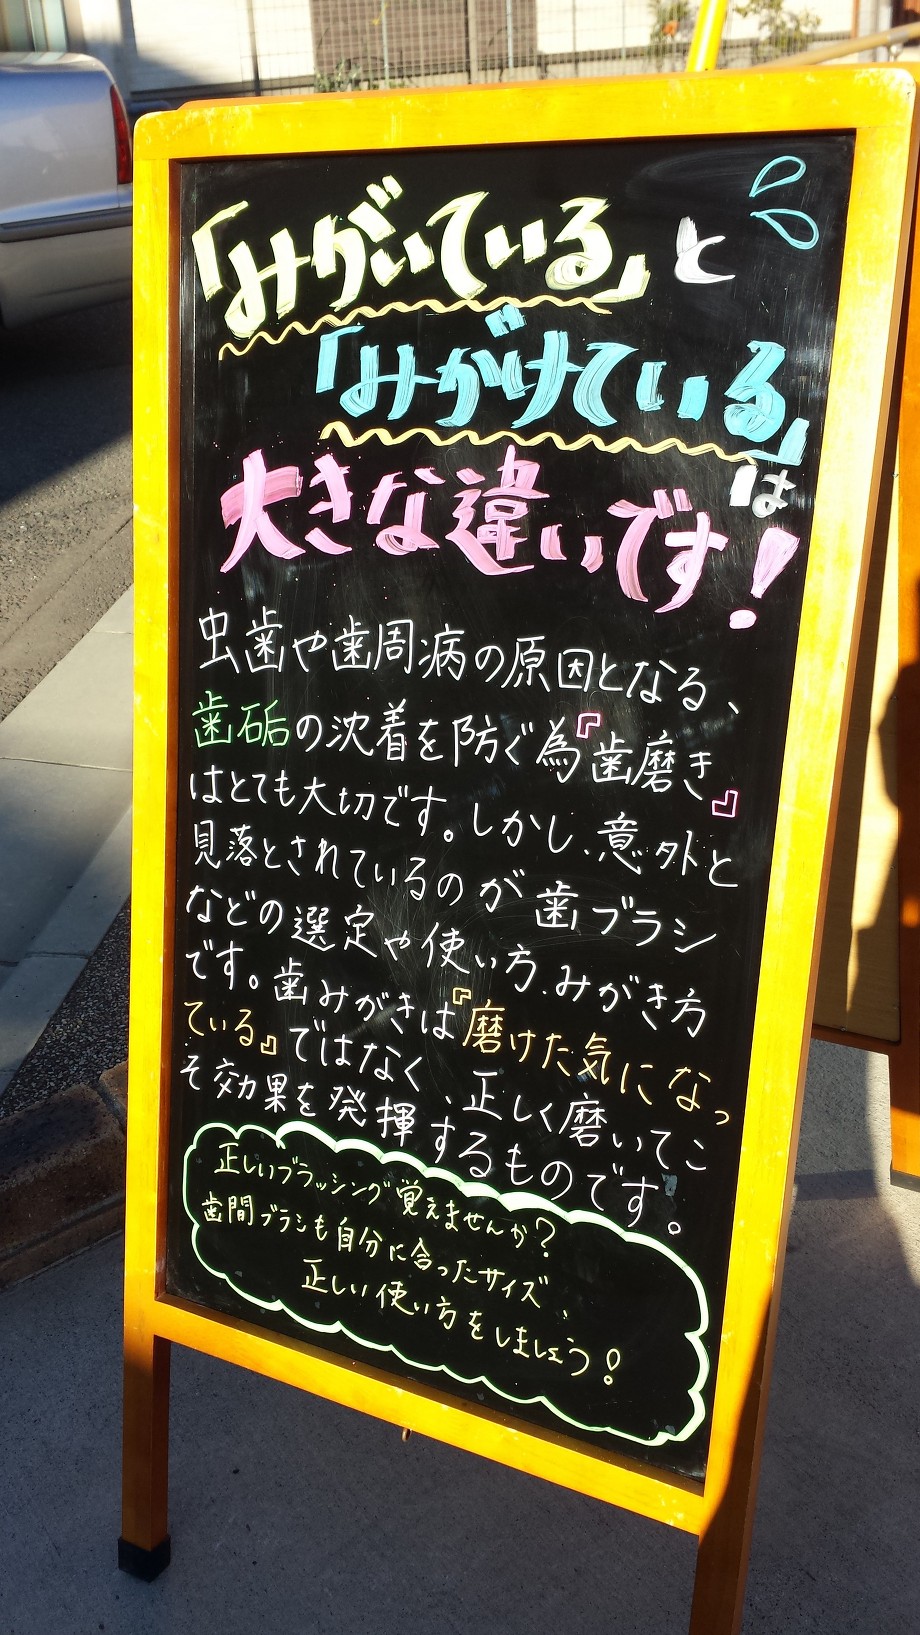 「みがいている」と
「みがけている」
は
大きな違いです!
虫歯や歯周病の原因となる、
歯垢の沈着を防ぐ為『歯磨き』
はとても大切です。しかし、意外と
見落とされているのが歯ブラシ
などの選定や使い方、みがき方
です。歯みがきは『磨けた気になっ
ている』ではなく、正しく磨いてこ
そ効果を発揮するものです。
正しいブラッシング覚えませんか?
歯間ブラシも自分に合ったサイズ、
正しい使い方をしましょう!